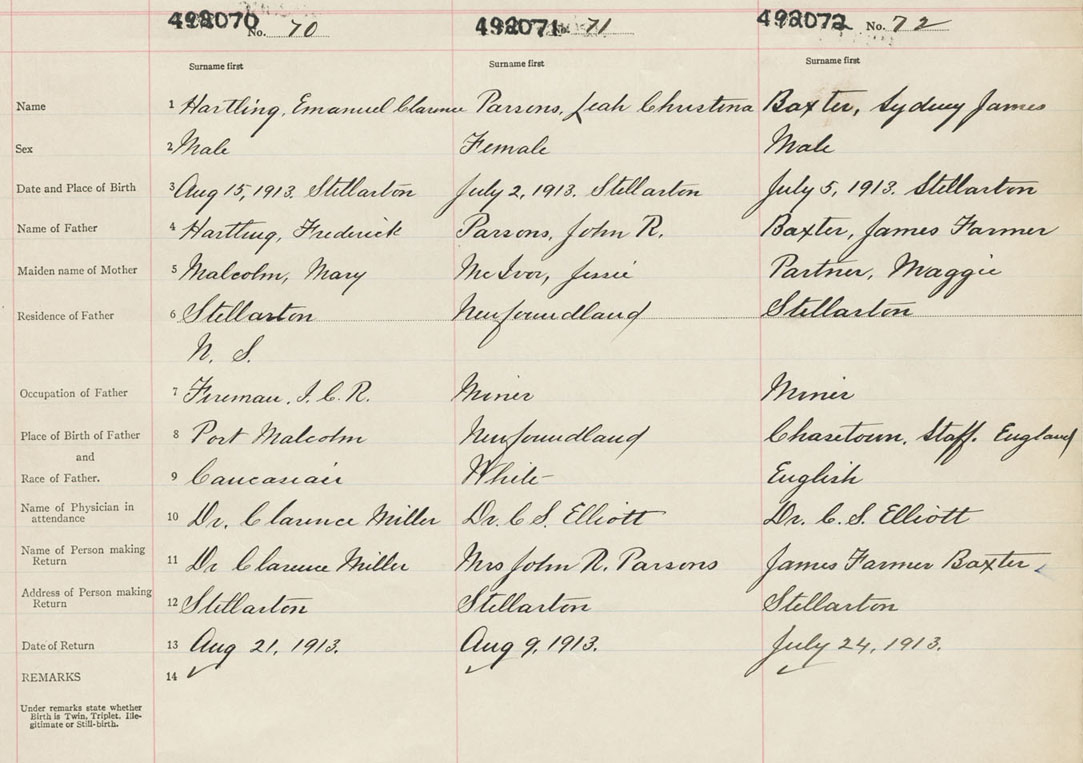 492070 No. 70 492071 No. 71 492072 No. 72
Surname first Surname first Surname first
Name 1 Hartling, Emanuel Clarence Parsons, Leah Christena Baxter, Sydney James
Sex 2 Male Female Male
Date and Place of Birth 3 Aug 15, 1913. Stellarton July 2, 1913. Stellarton July 5, 1913. Stellarton
Name of Father 4 Hartling, Frederick Parsons, John R. Baxter, James Farmer
Maiden name of Mother 5 Malcolm, Mary McIvor, Jessie Partner, Maggie
Residence of Father 6 Stellarton Newfoundland Stellarton
N. S.
Occupation of Father 7 Fireman. I. C. R. Miner Miner
Place of Birth of Father 8 Port Malcolm Newfoundland Chasetown, Staff. England
and
Race of Father. 9 Caucasian White English
Name of Physician in
attendance 10 Dr. Clarence Miller Dr. C S. Elliott Dr. C. S. Elliott
Name of Person making
Return 11 Dr Clarence Miller Mrs John R. Parsons James Farmer Baxter
Address of Person making
Return 12 Stellarton Stellarton Stellarton
Date of Return 13 Aug 21, 1913. Aug 9, 1913. July 24, 1913.
REMARKS 14
Under remarks state whether
Birth is Twin, Triplet, Ille-
gitimate or Still-birth.